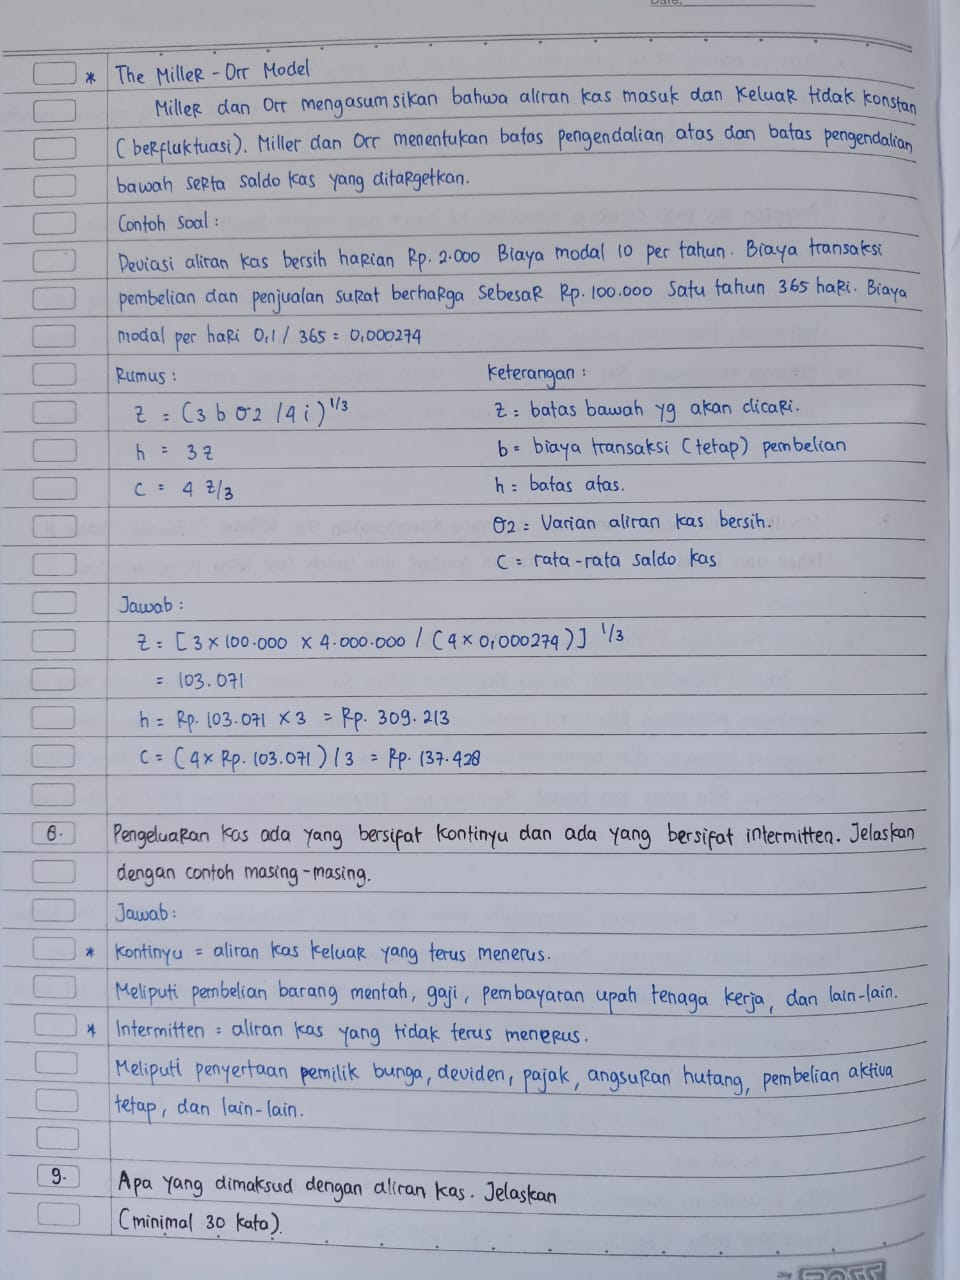 Date:
* The Miller - Orr Model
Miller dan Orr mengasumsikan bahwa aliran kas masuk dan keluar tidak konstan
(berfluktuasi). Miller dan Orr menentukan batas pengendalian atas dan batas pengendalian
bawah serta saldo kas yang ditargetkan.
Contoh soal :
Deviasi aliran kas bersih harian Rp. 2.000 Biaya modal 10 per tahun. Biaya transaksi
pembelian dan penjualan surat berharga sebesar Rp. 100.000 Satu tahun 365 hari. Biaya
modal per hari 0,1 / 365 = 0,000274
Rumus : Keterangan :
Z = (3 b σ2 / 4 i) 1/3 Z = batas bawah yg akan dicari.
h = 3 Z b = biaya transaksi (tetap) pembelian
C = 4 Z/3 h = batas atas.
σ2 = Varian aliran kas bersih.
C = rata-rata saldo kas
Jawab :
Z = [3 x 100.000 x 4.000.000 / (4 x 0,000274)] 1/3
= 103.071
h = Rp. 103.071 x 3 = Rp. 309.213
C = (4x Rp. 103.071) / 3 = Rp. 137.428
8. Pengeluaran kas ada yang bersifat kontinyu dan ada yang bersifat intermitten. Jelaskan
dengan contoh masing-masing.
Jawab :
* Kontinyu = aliran kas keluar yang terus menerus.
Meliputi pembelian barang mentah, gaji, pembayaran upah tenaga kerja, dan lain-lain.
* Intermitten = aliran kas yang tidak terus menerus.
Meliputi penyertaan pemilik bunga, deviden, pajak, angsuran hutang, pembelian aktiva
tetap, dan lain-lain.
9. Apa yang dimaksud dengan aliran kas. Jelaskan
(minimal 30 kata).